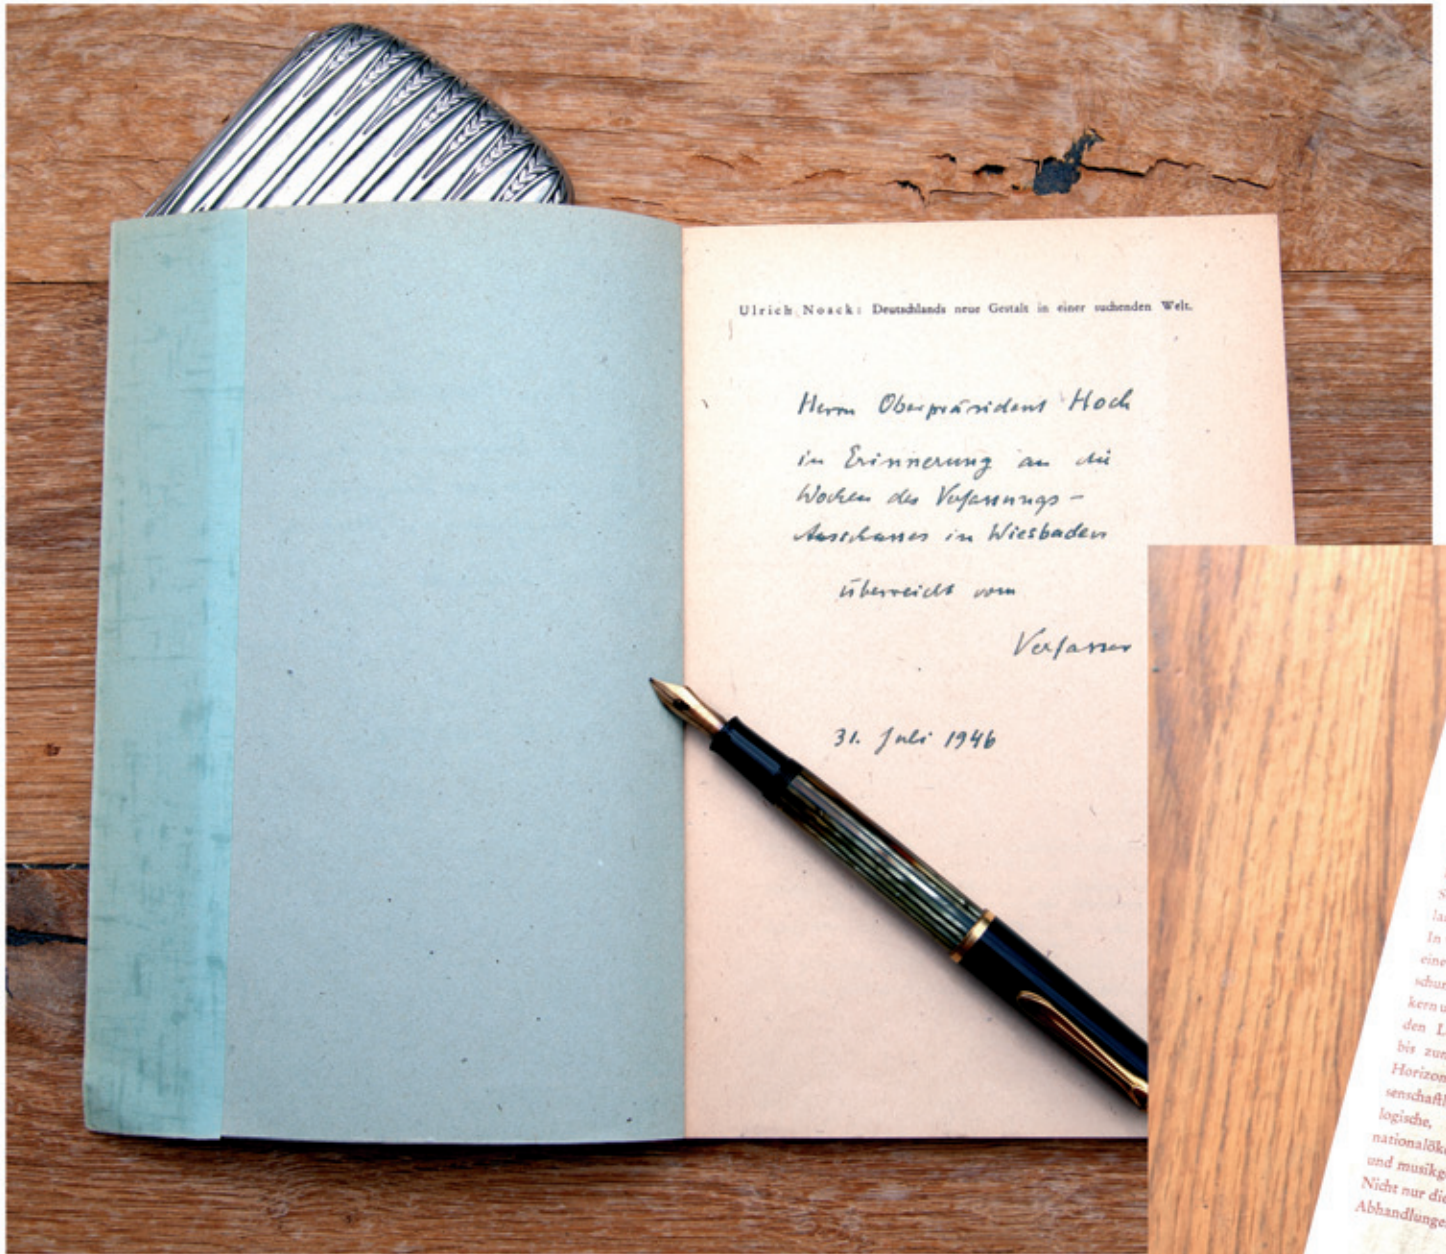 Ulrich Noack: Deutschlands neue Gestalt in einer suchenden Welt.
Herrn Oberpräsident Hoch
in Erinnerung an die
Wochen des Verfassungs-
Ausschusses in Wiesbaden
überreicht vom
Verfasser
31. Juli 1946
In
eine
den
bis zum
Horizon
senschaftl
logische,
nationalök
und musikg
Nicht nur die
Abhandlunge